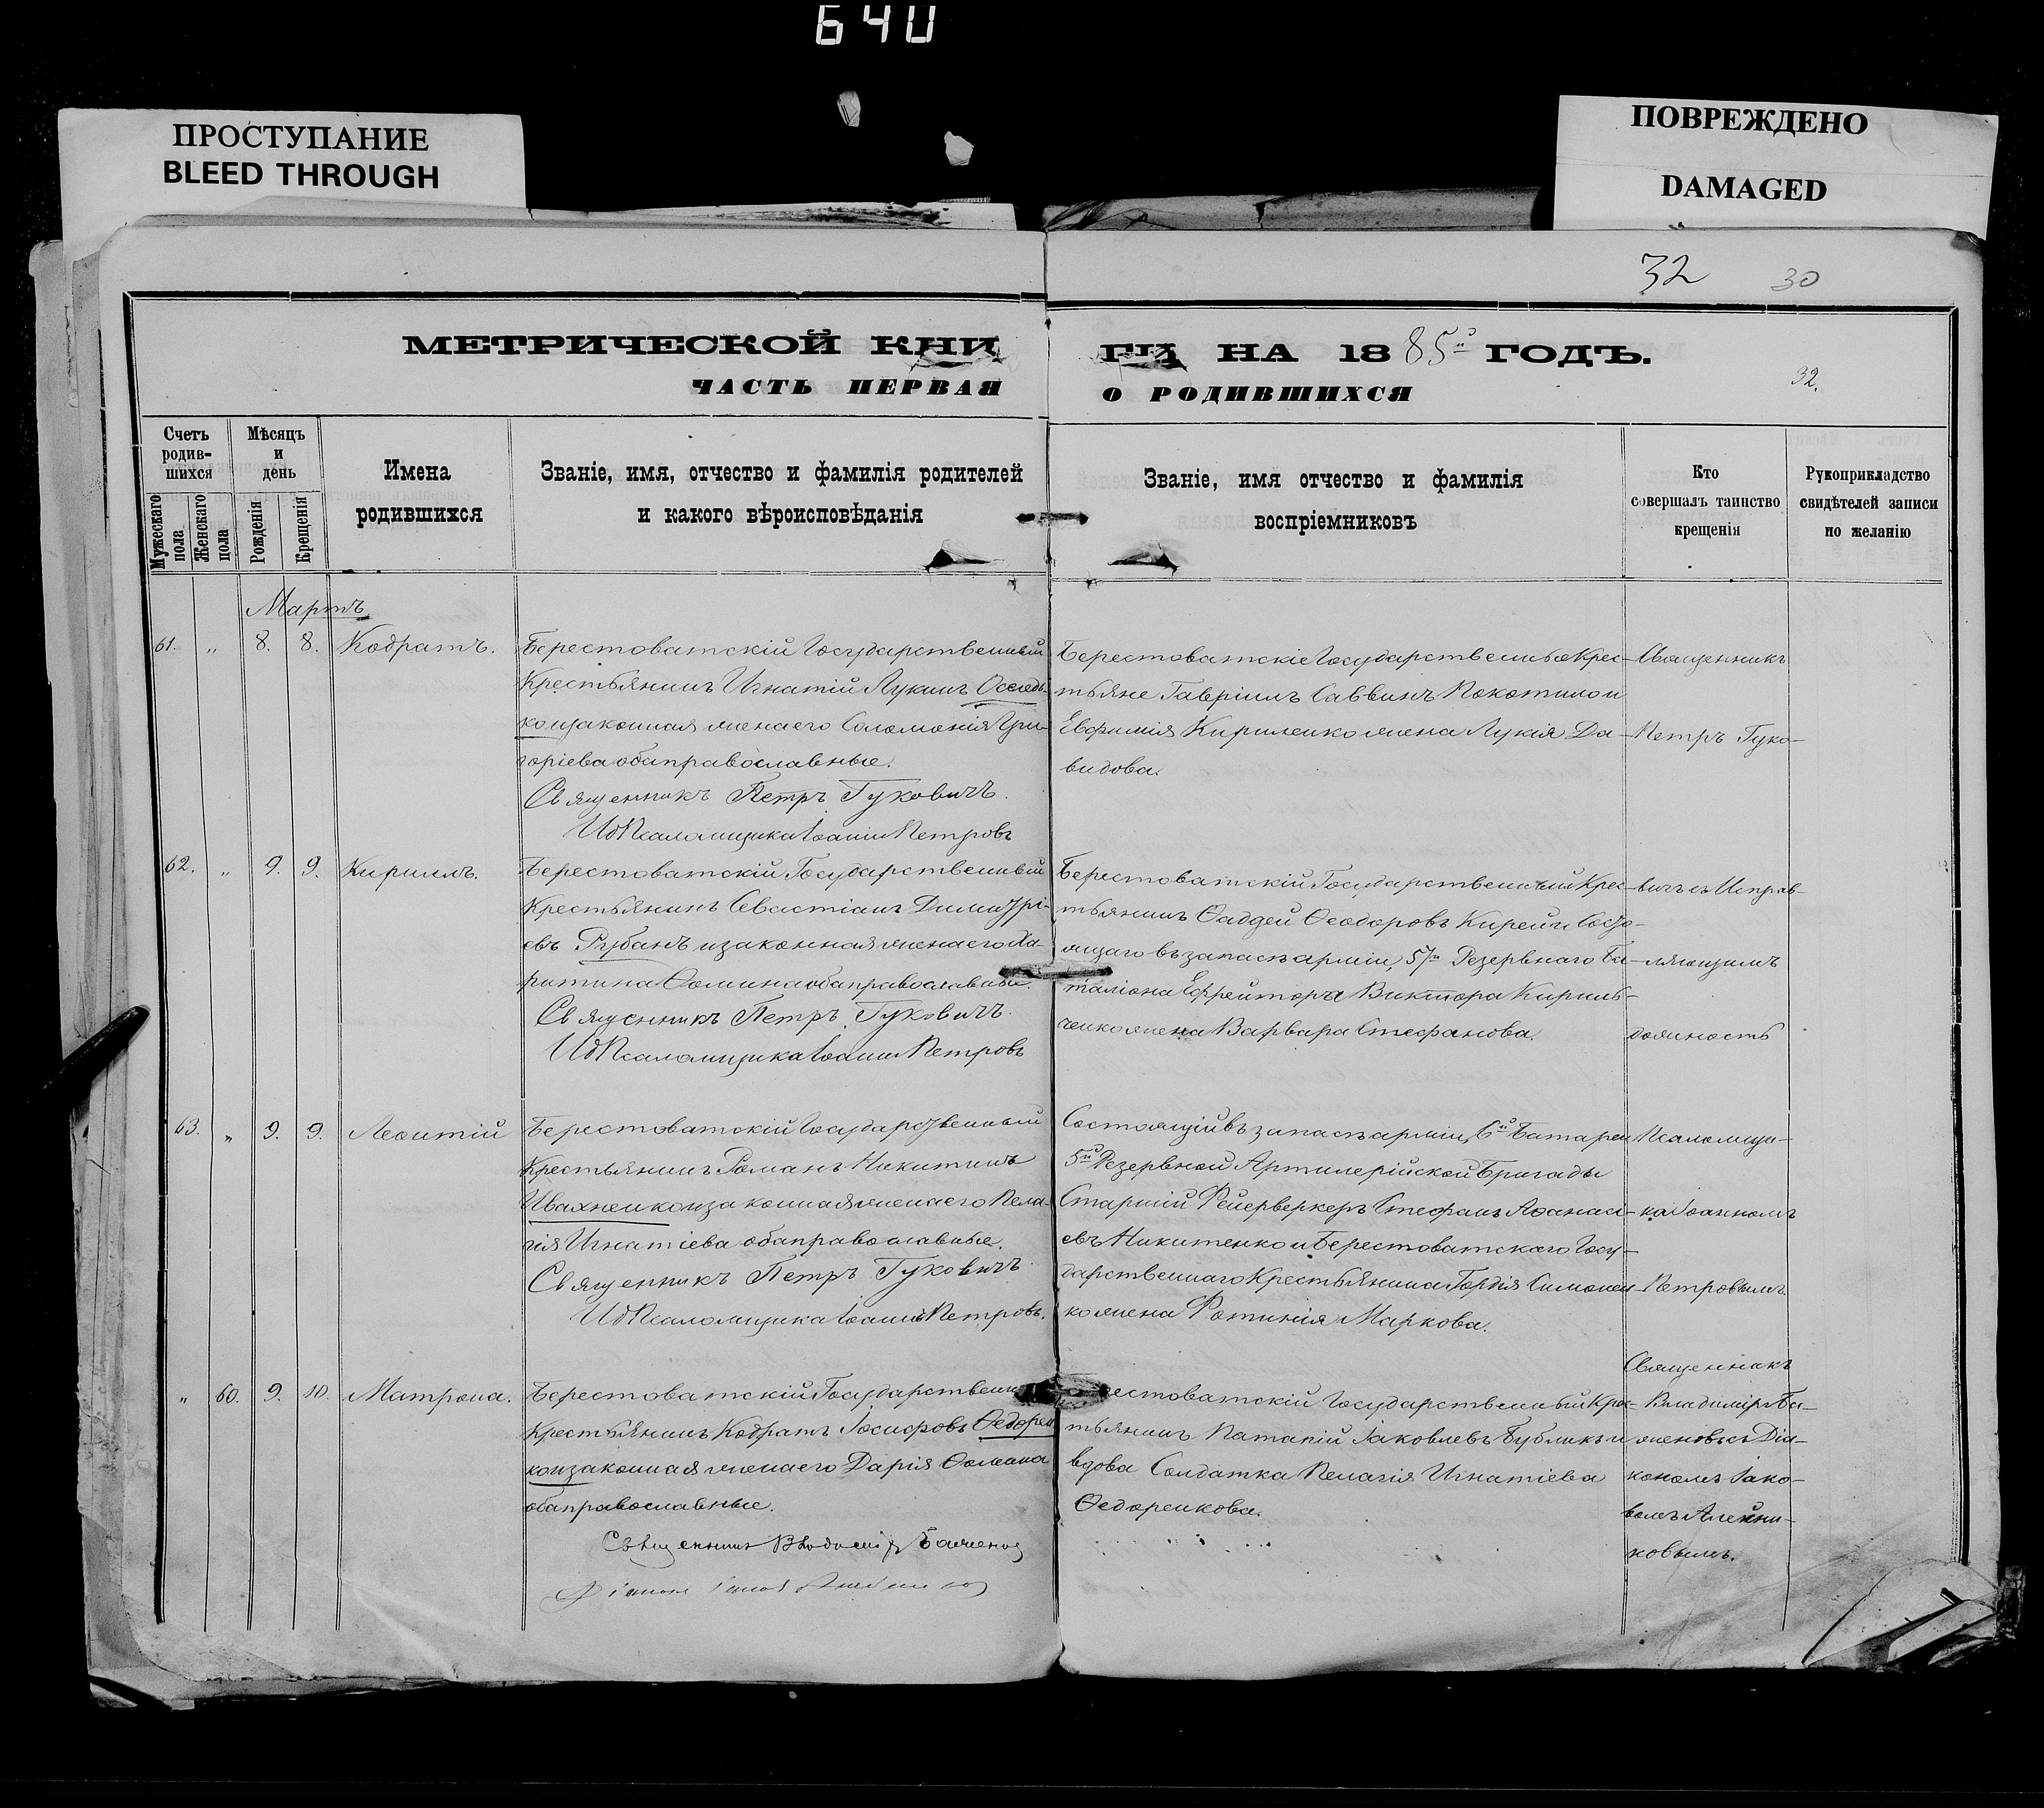 640
ПРОСТУПАНИЕ
BLEED THROUGH
ПОВРЕЖДЕНО
DAMAGED
32 30
МЕТРИЧЕСКОЙ КНИ
ГИ НА 1885й ГОДЪ.
ЧАСТЬ ПЕРВАЯ
О РОДИВШИХСЯ
32.
Счетъ родив-шихся
Мужескаго пола
Женскаго пола
Мѣсяцъ и день
Рожденія
Крещенія
Имена
родившихся
Званіе, имя, отчество и фамилія родителей
и какого вѣроисповѣданія
Званіе, имя отчество и фамилія
воспріемниковъ
Кто
совершалъ таинство
крещенія
Рукоприкладство
свидѣтелей записи
по желанію
Мартъ
61. „ 8. 8. Кодратъ.
Берестоватскій Государственный
Крестьянинъ Игнатій Лукинъ Оселед-
ко и законная жена его Соломонія Гри-
горіева оба православные.
Священникъ Петръ Гуковичъ.
Ид Псаломщика Іоаннъ Петровъ
Берестоватскіе Государственные Крес-
тьяне Гавріилъ Саввинъ Покотило и
Евфимія Кириленко жена Лукія Да-
видова.
Священникъ
Петръ Гуко-
62. „ 9. 9. Кириллъ.
Берестоватскій Государственный
Крестьянинъ Севастіанъ Димитрі-
евъ Рубанъ и законная жена его Ха-
ритина Фомина оба православные.
Священникъ Петръ Гуковичъ.
Ид Псаломщика Іоаннъ Петровъ
Берестоватскій Государственный Крес-
тьянинъ Фаддей Феодоровъ Кирей и Состо-
ящаго въ запасѣ арміи, 57го Резервнаго Ба-
таліона Ефрейтора Виктора Кириль-
ченко жена Варвара Стефанова.
вичъ съ Исправ-
ляющимъ
должность
63. „ 9. 9. Леонтій
Берестоватскій Государственный
Крестьянинъ Романъ Никитинъ
Ивахненко и законная жена его Пела-
гія Игнатіева оба православные.
Священникъ Петръ Гуковичъ
Ид Псаломщика Іоаннъ Петровъ.
Состоящій въ запасѣ арміи, 6й Батареи
5й Резервной Артилерійской Бригады
Старшій Фейерверкеръ Стефанъ Афанасі-
евъ Никитенко и Берестоватскаго Госу-
дарственнаго Крестьянина Гордія Симонен-
ко жена Фотинія Маркова.
Псаломщи-
ка Іоанномъ
Петровымъ.
„ 60. 9. 10. Матрона.
Берестоватскій Государствен
Крестьянинъ Кодратъ Іосифовъ Федорен
ко и законная жена его Дарія Фомина
оба православные.
Священникъ Владиміръ Баженов
рестоватскій Государственный Крес-
тьянинъ Патапій Іаковлевъ Бубликъ и
вдова Солдатка Пелагія Игнатіева
Федоренкова.
Священникъ
Владиміръ Ба-
женовъ съ Діа-
кономъ Іако-
вомъ Алейни-
ковымъ.